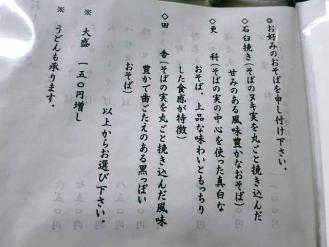 ◎お好みのおそばを申し付け下さい。
◇石臼挽き(そばのヌキ実を丸ごと挽き込んだ
甘みのある風味豊かなおそば)
◇更 科(そばの実の中心を使った真白な
おそば、上品な味わいともっちり
した食感が特徴)
◇田 舎(そばの実を丸ごと挽き込んだ風味
豊かで歯ごたえのある黒っぽい
おそば)
以上からお選び下さい。
※ 大盛 一五〇円増し
※ うどんも承ります。